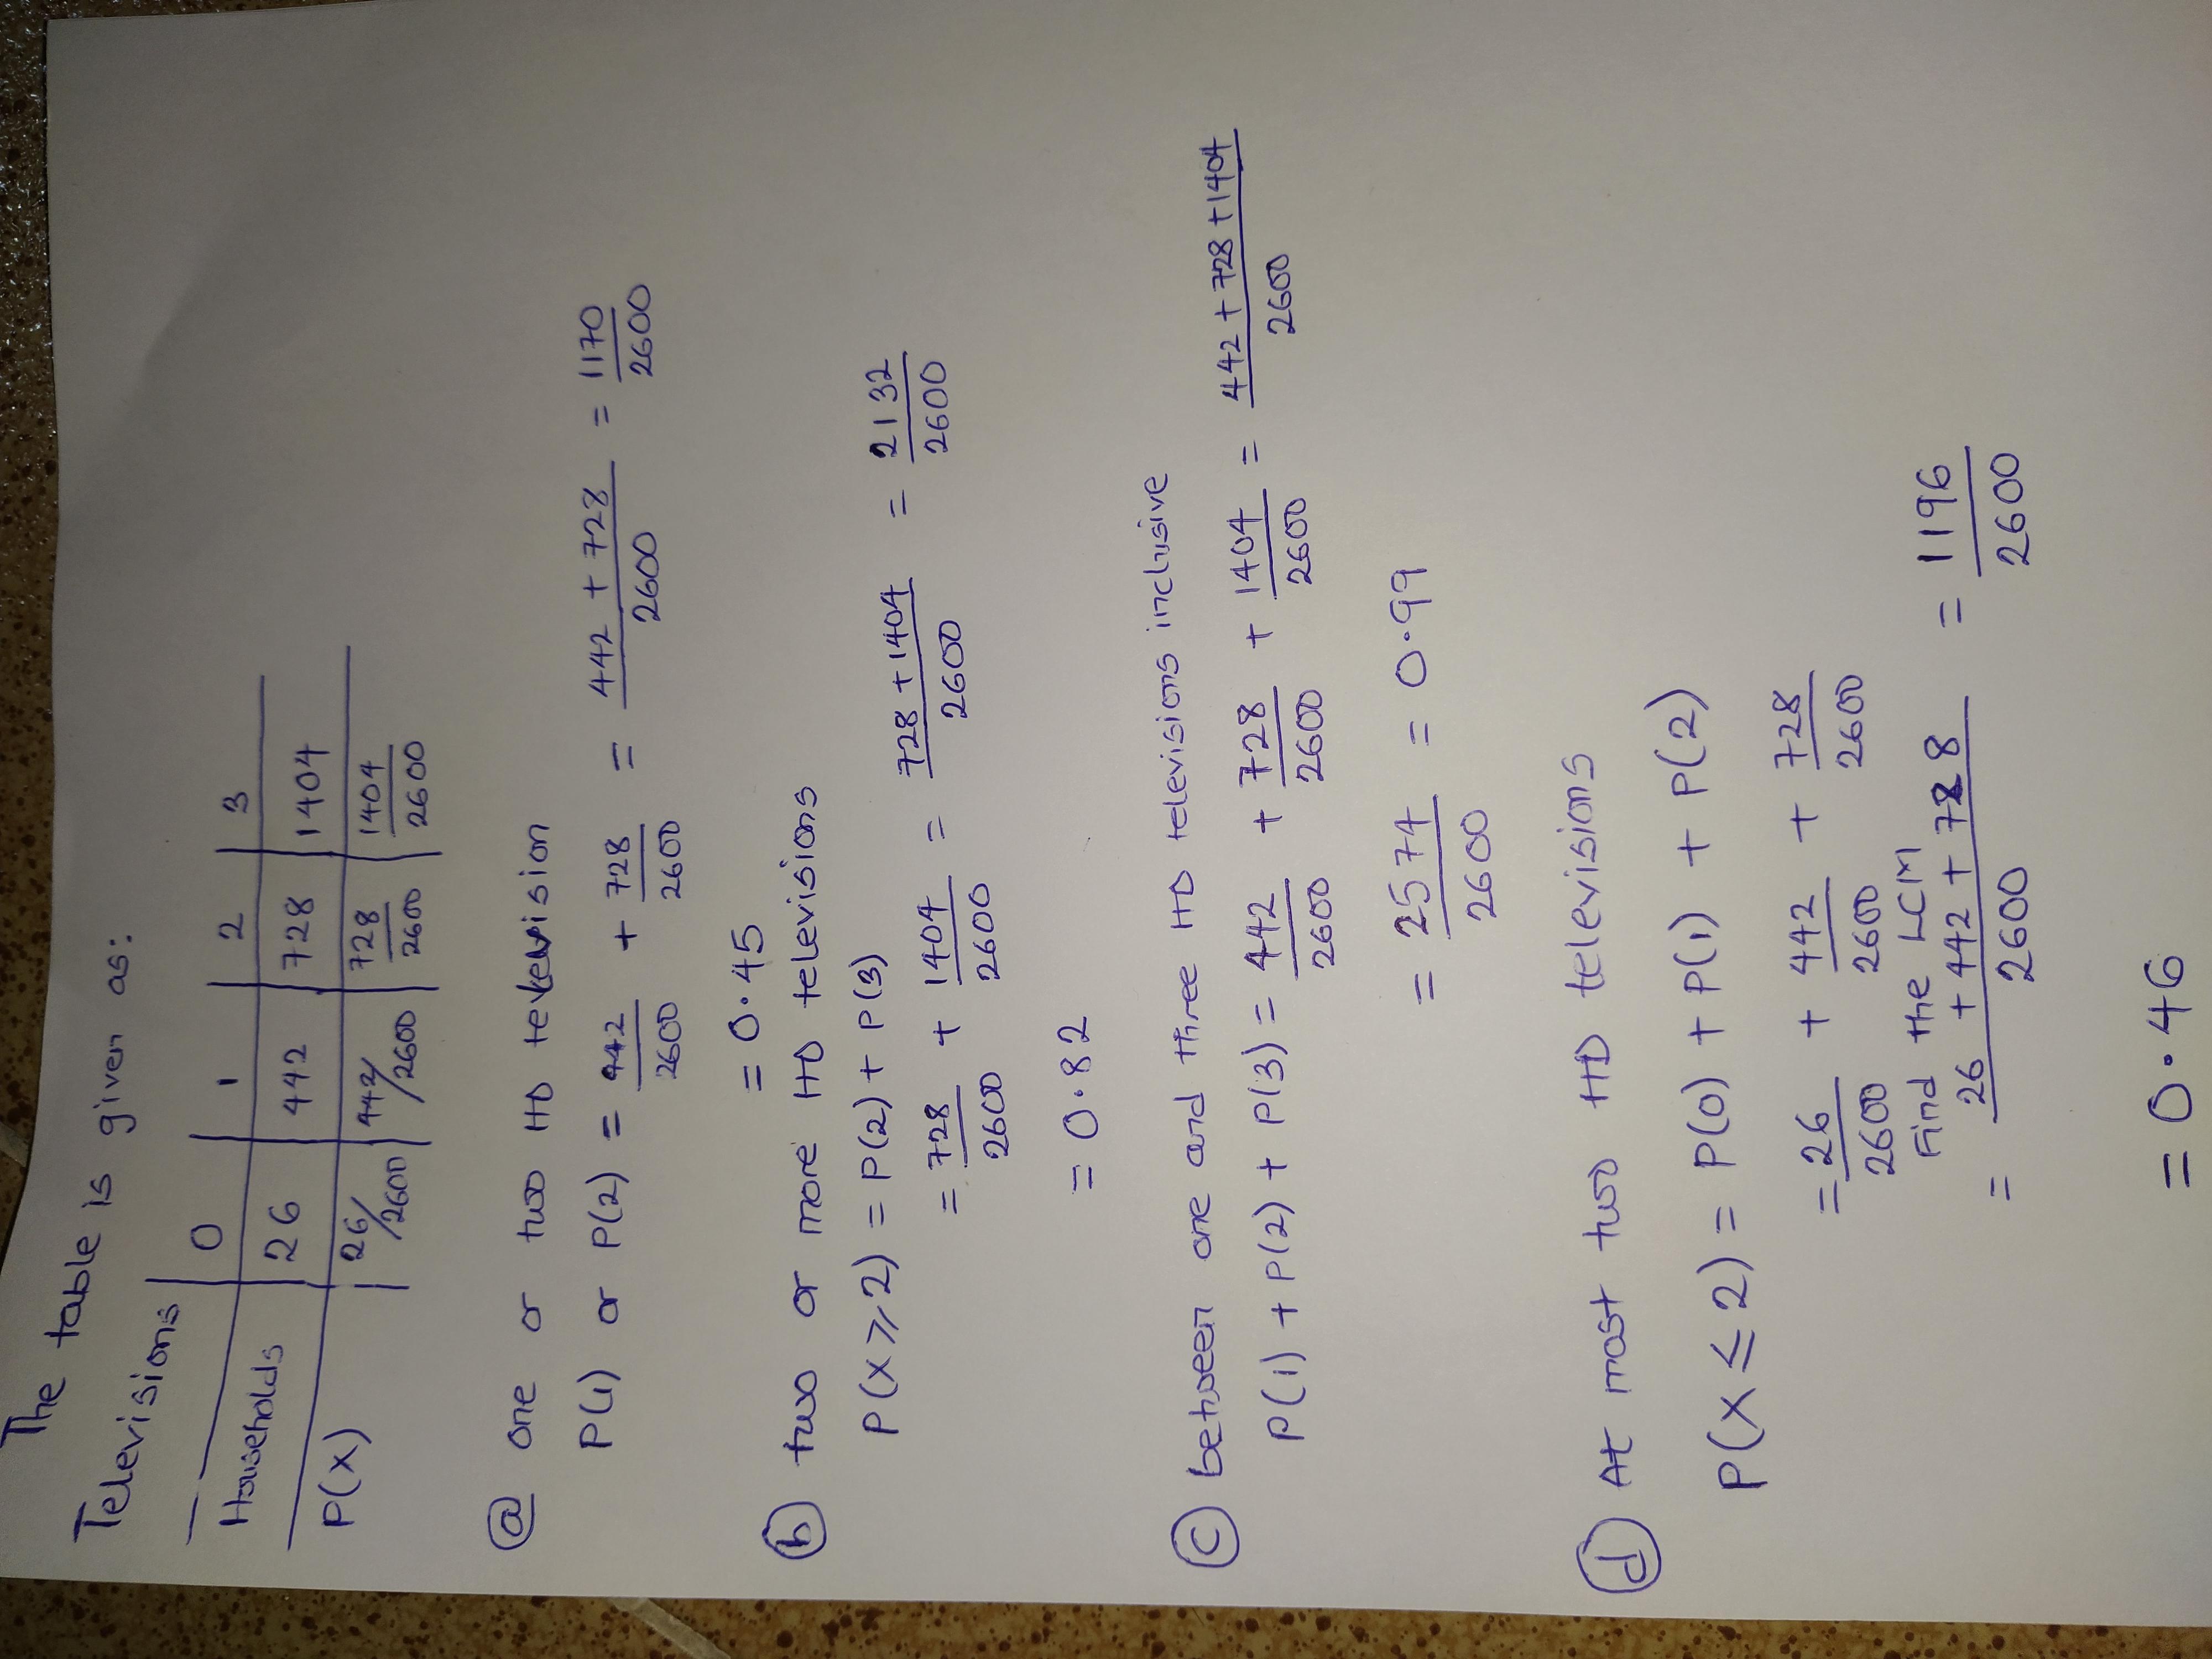 The table is given as:
Televisions | 0 | 1 | 2 | 3
Households | 26 | 442 | 728 | 1404
P(x) | 26/2600 | 442/2600 | 728/2600 | 1404/2600
(a) one or two HD television
P(1) or P(2) = 442/2600 + 728/2600 = (442 + 728)/2600 = 1170/2600
= 0.45
(b) two or more HD televisions
P(x ⩾ 2) = P(2) + P(3)
= 728/2600 + 1404/2600 = (728 + 1404)/2600 = 2132/2600
= 0.82
(c) between one and three HD televisions inclusive
P(1) + P(2) + P(3) = 442/2600 + 728/2600 + 1404/2600 = (442 + 728 + 1404)/2600
= 2574/2600 = 0.99
(d) At most two HD televisions
P(x ≤ 2) = P(0) + P(1) + P(2)
= 26/2600 + 442/2600 + 728/2600
Find the LCM
= (26 + 442 + 728)/2600 = 1196/2600
= 0.46